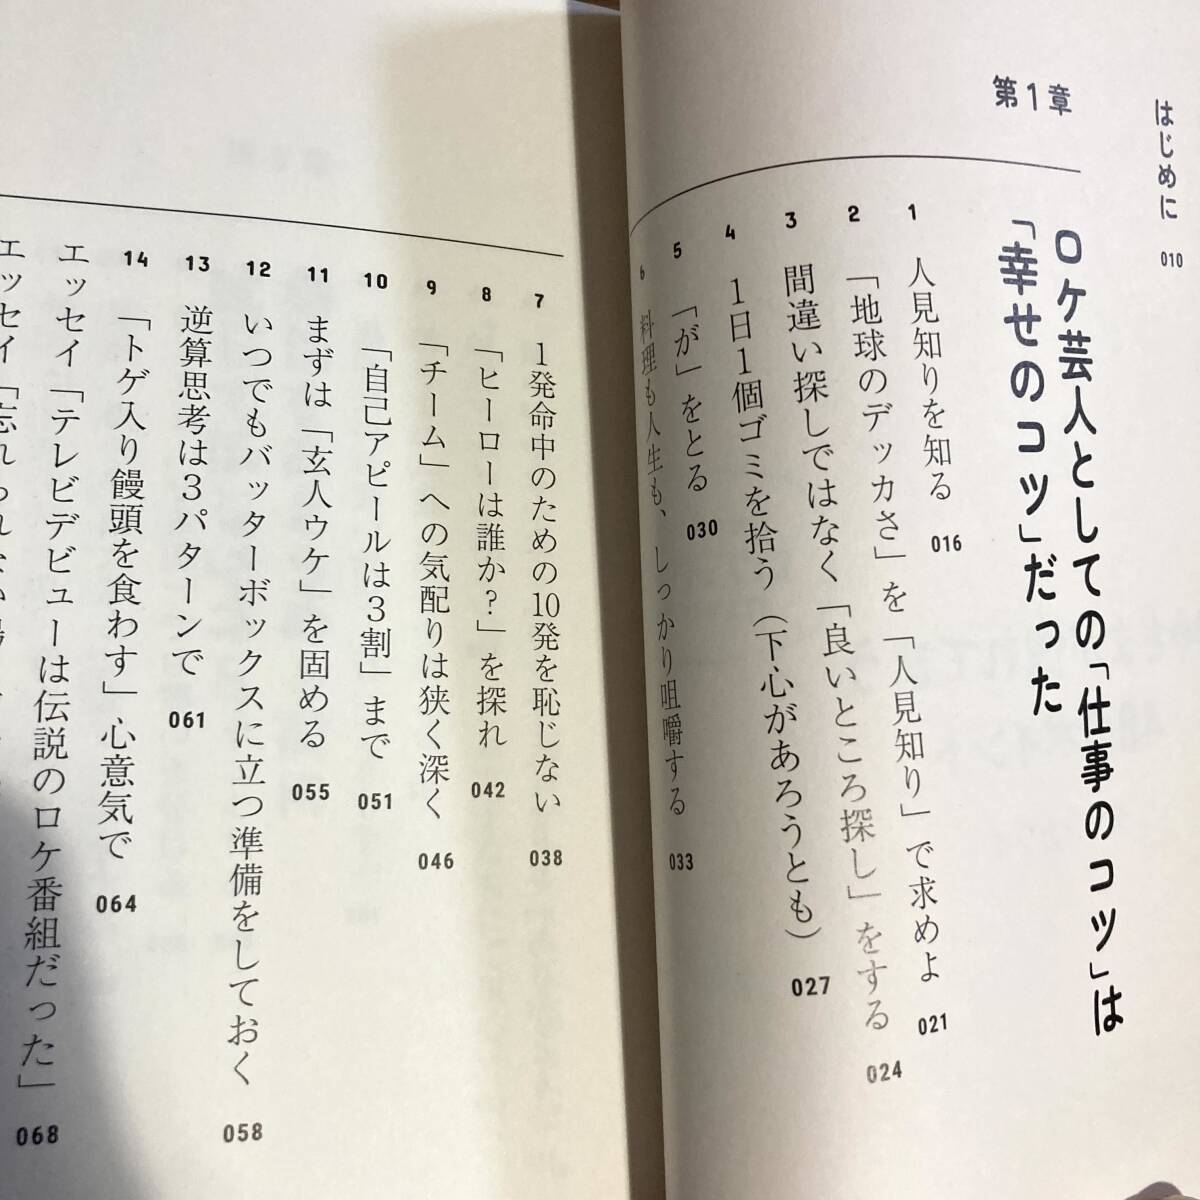 はじめに 010
第1章
ロケ芸人としての「仕事のコツ」は
「幸せのコツ」だった
1 人見知りを知る 016
2 「地球のデッカさ」を「人見知り」で求めよ 021
3 間違い探しではなく「良いところ探し」をする 024
4 1日1個ゴミを拾う（下心があろうとも） 027
5 「が」をとる 030
6 料理も人生も、しっかり咀嚼する 033
7 1発命中のための10発を恥じない 038
8 「ヒーローは誰か?」を探れ 042
9 「チーム」への気配りは狭く深く 046
10 「自己アピールは3割」まで 051
11 まずは「玄人ウケ」を固める 055
12 いつでもバッターボックスに立つ準備をしておく 058
13 逆算思考は3パターンで 061
14 「トゲ入り饅頭を食わす」心意気で 064
エッセイ「テレビデビューは伝説のロケ番組だった」 068
エッセイ「忘れられない